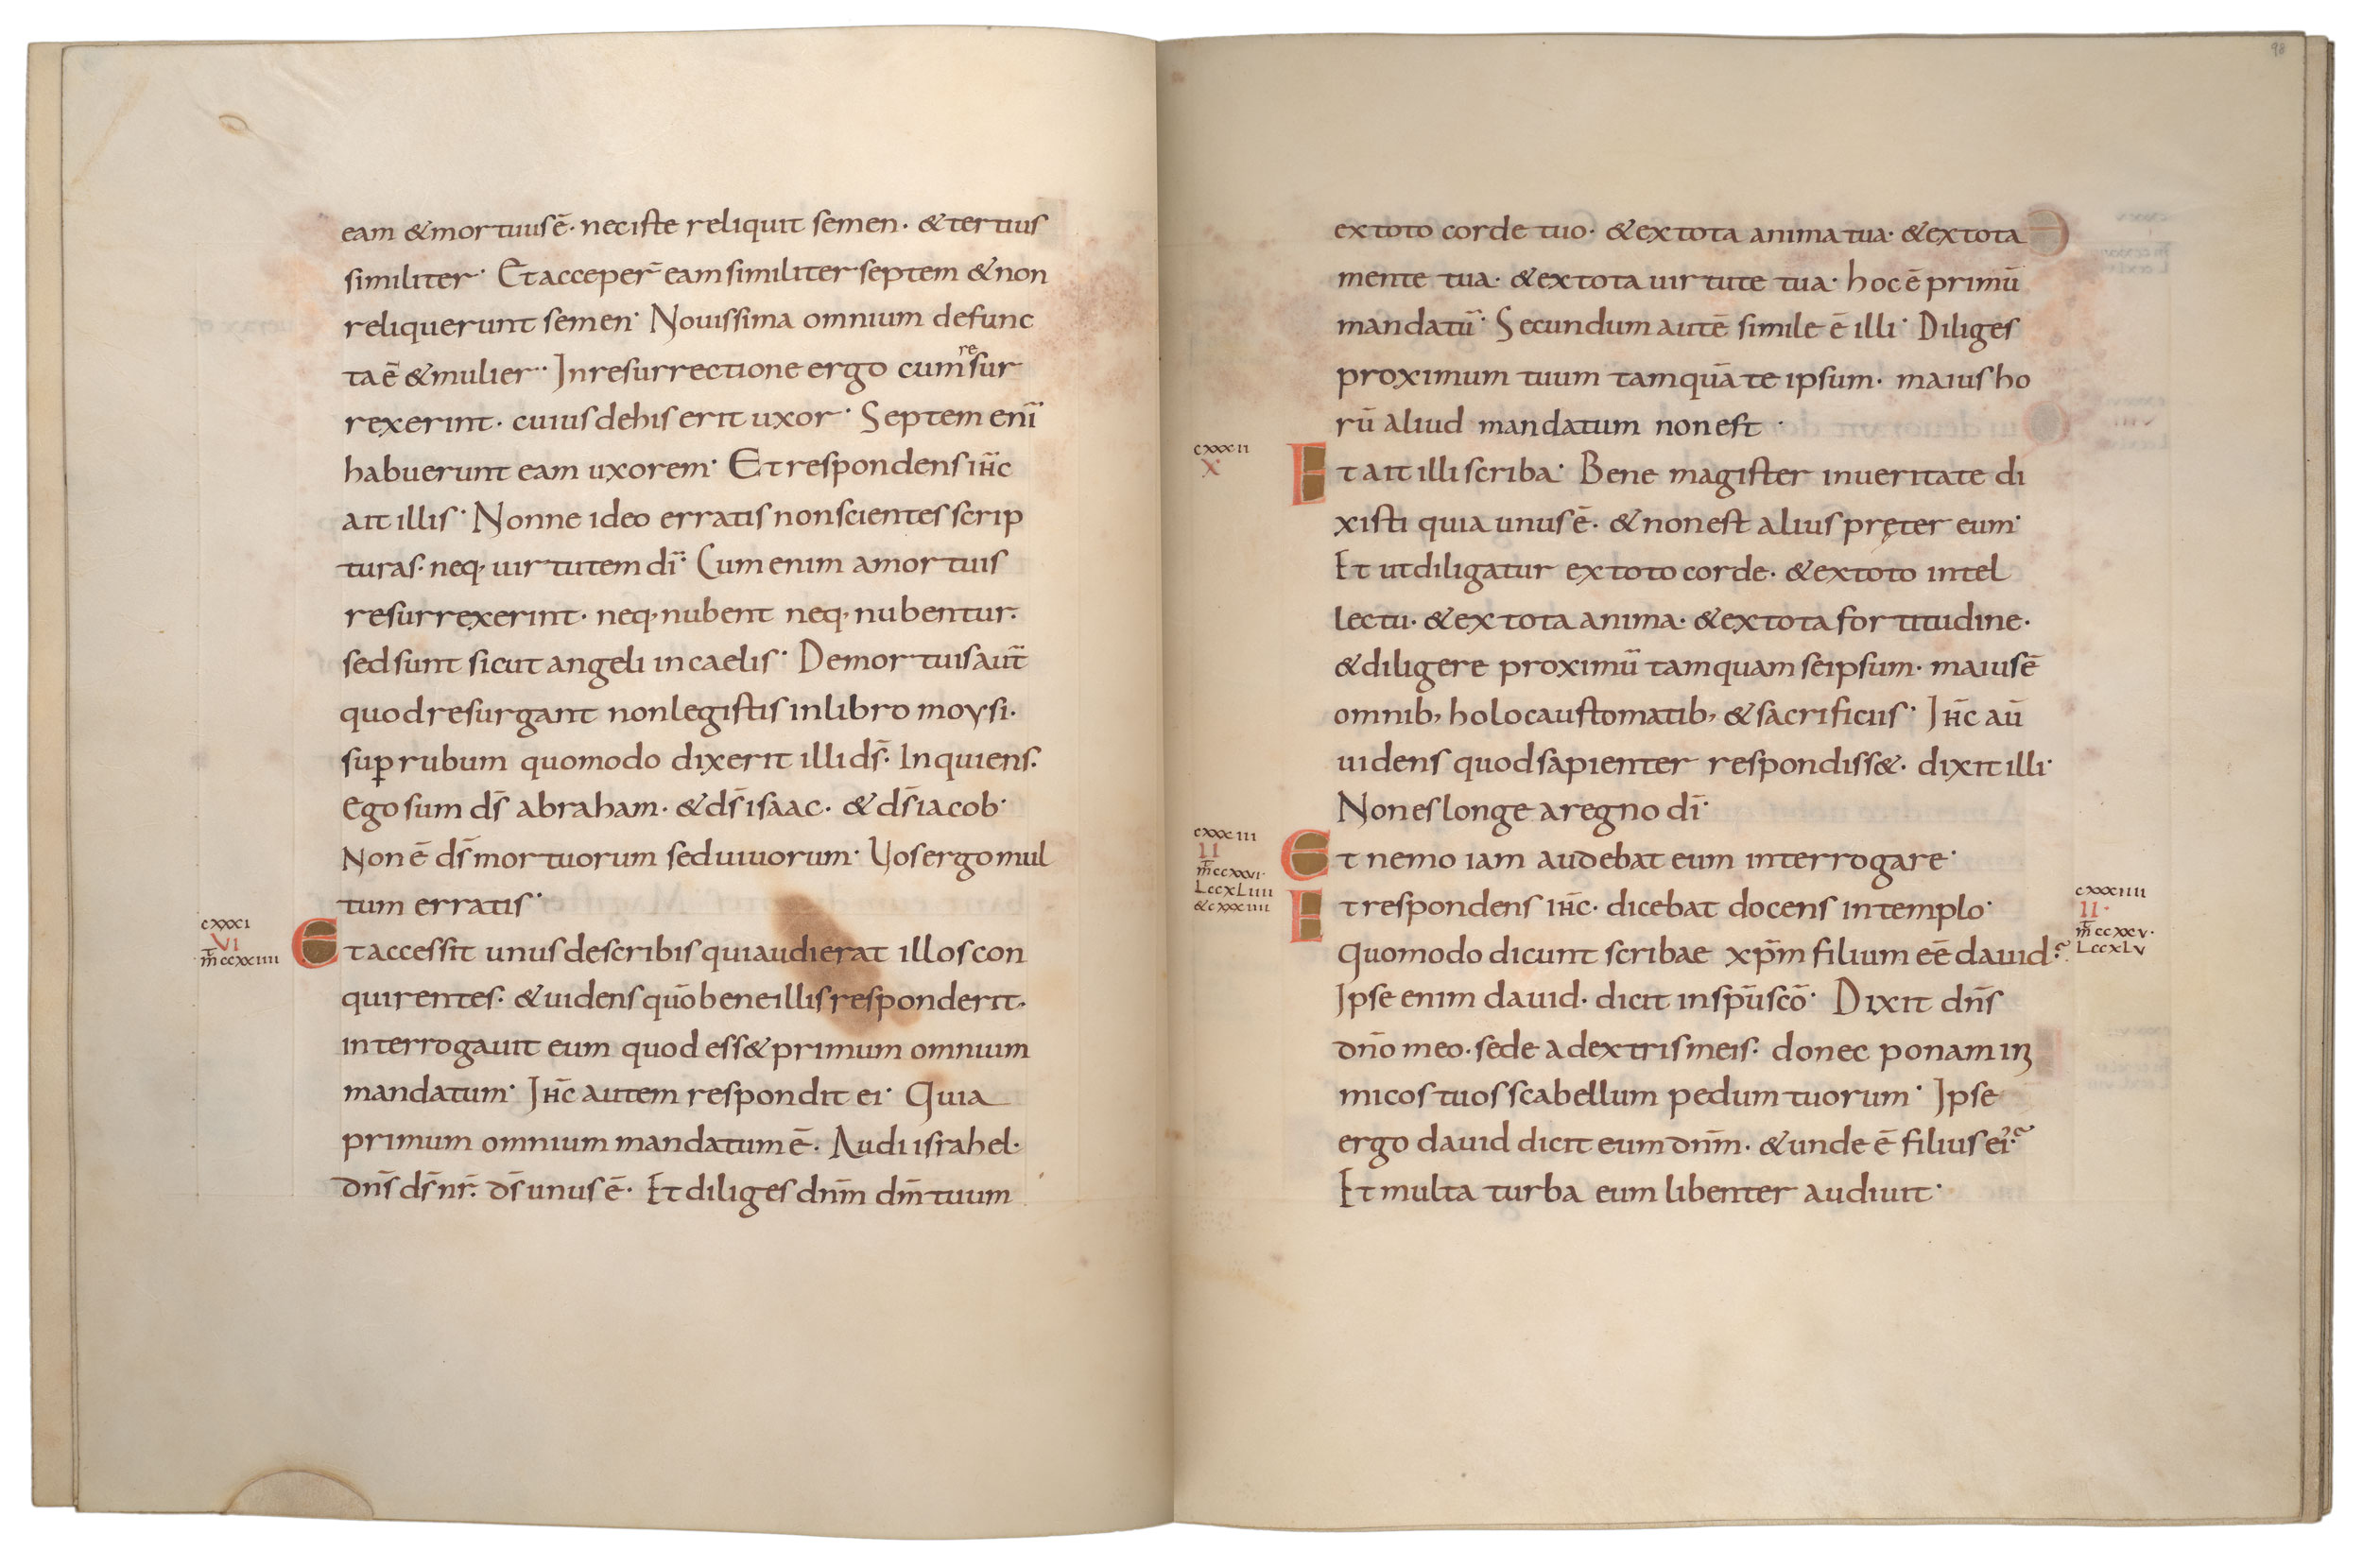 eam & mortuus ē· nec iste reliquit semen· & tertius
similiter· Et acceper̄ eam similiter septem & non
reliquerunt semen· Nouissima omnium defunc
ta ē & mulier·· In resurrectione ergo cum re sur
rexerint· cuius de his erit uxor· Septem enī
habuerunt eam uxorem· Et respondens ih̄c
ait illis· Nonne ideo erratis non scientes scrip
turas· neq· uirtutem dī· Cum enim a mortuis
resurrexerint· neq· nubent neq· nubentur·
sed sunt sicut angeli in caelis· De mortuis aut̄
quod resurgant non legistis in libro moysi·
suꝑ rubum quomodo dixerit illi ds̄· Inquiens·
Ego sum ds̄ abraham· & ds̄ isaac· & ds̄ iacob·
Non ē ds̄ mortuorum sed uiuorum· Uos ergo mul
tum erratis·
cxxxi
VI
m̄ccxxiiii
Et accessit unus de scribis qui audierat illos con
quirentes· & uidens quō bene illis responderit·
interrogauit eum quod ess& primum omnium
mandatum· Ih̄c autem respondit ei· Quia
primum omnium mandatum ē· Audi israhel·
dns̄ ds̄ nr̄· ds̄ unus ē· Et diliges dnm̄ dm̄ tuum
98
ex toto corde tuo· & ex tota anima tua· & ex tota
mente tua· & ex tota uirtute tua· hoc ē primū
mandatū· Secundum autē simile ē illi· Diliges
proximum tuum tamquā te ipsum· maius ho
rū aliud mandatum non est·
cxxxii
X
Et ait illi scriba· Bene magister in ueritate di
xisti quia unus ē· & non est alius pręter eum·
Et ut diligatur ex toto corde· & ex toto intel
lectu· & ex tota anima· & ex tota fortitudine·
& diligere proximū tamquam se ipsum· maius ē
omnib, holocaustomatib, & sacrificiis· Ih̄c au̅
uidens quod sapienter respondiss&· dixit illi·
Non es longe a regno dī·
cxxxiii
II
m̄ccxxvi·
LccxLiiii
&cxxxiiii
Et nemo iam audebat eum interrogare·
Et respondens ih̄c· dicebat docens in templo·
cxxxiiii
II·
m̄ccxxv·
LccxLv
Quomodo dicunt scribae xp̄m filium eē dauid?
Ipse enim dauid· dicit in spū scō· Dixit dns̄
dnō meo· sede a dextris meis· donec ponam ini
micos tuos scabellum pedum tuorum· Ipse
ergo dauid dicit eum dnm̄· & unde ē filius ei᾿?
Et multa turba eum libenter audiuit·